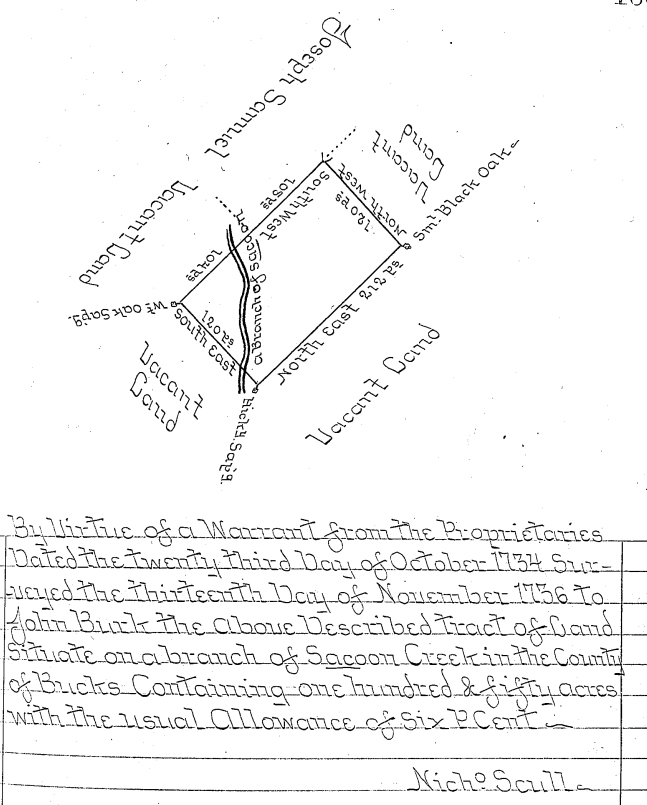 Joseph Samuel
Vacant Land
Vacant
Land
Smt. Black Oak
North West
120 Ps
108 Ps
South West
104 Ps
Wt. Oak Sap'g.
South East
120 Ps
a Branch of Sacoon
North East 212 Ps
Vacant Land
Vacant
Land
Hick'y. Sap'g.
By Virtue of a Warrant from the Proprietaries
Dated the twenty third Day of October 1734 Sur-
veyed the thirteenth Day of November 1736 To
John Burk the Above Described Tract of Land
Situate on a branch of Sacoon Creek in the County
of Bucks Containing one hundred & fifty acres
with the usual Allowance of Six P Cent
Nicho Scull